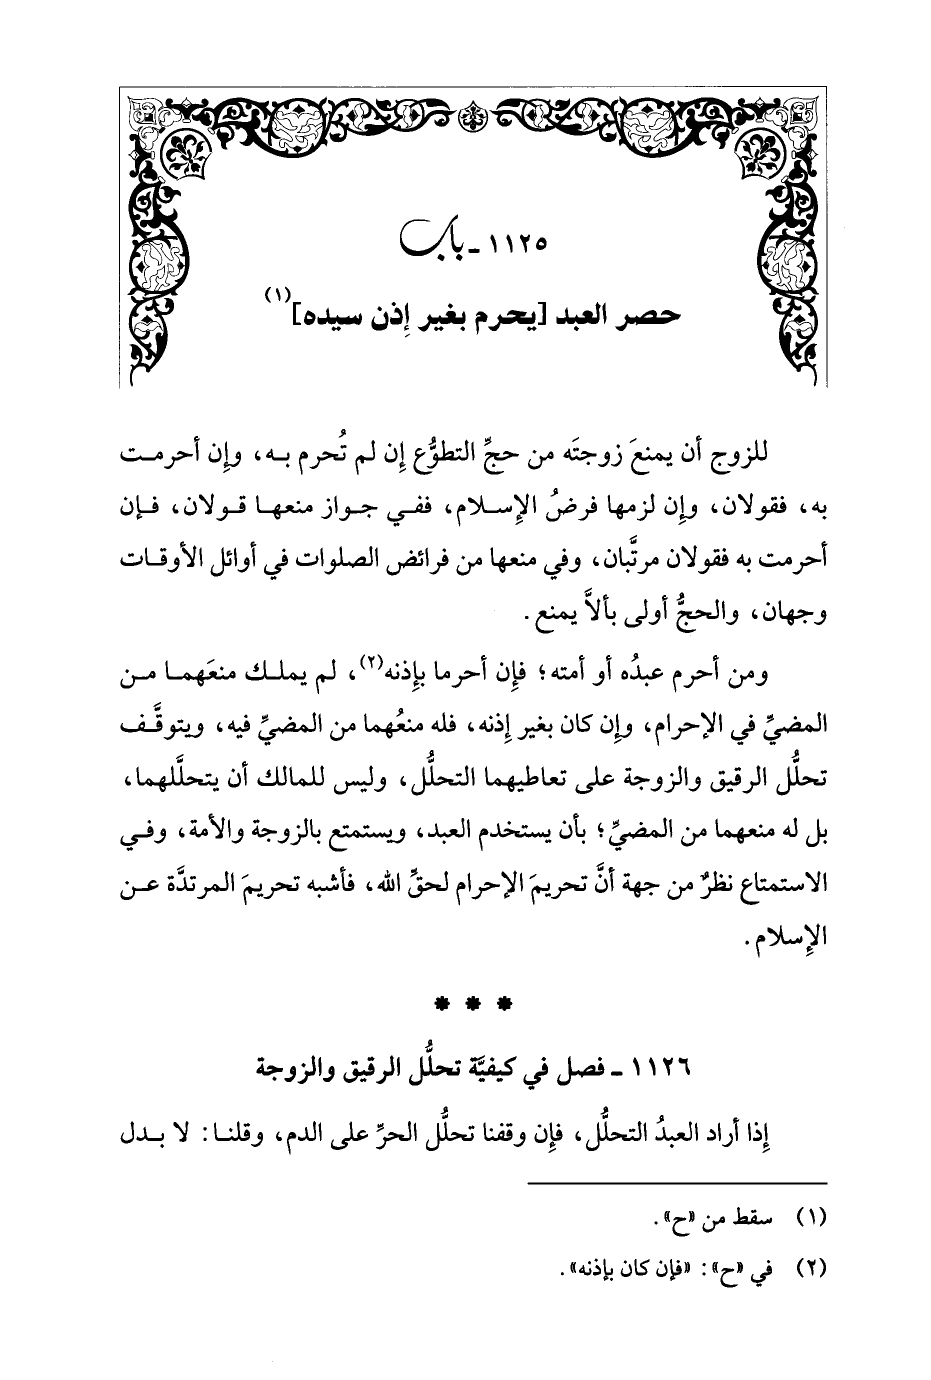 ١١٢٥ - باب
حصر العبد [يحرم بغير إذن سيده](١)
للزوج أن يمنعَ زوجتَه من حجِّ التطوُّع إن لم تُحرم به، وإن أحرمت
به، فقولان، وإن لزمها فرضُ الإسلام، ففي جواز منعها قولان، فإن
أحرمت به فقولان مرتَّبان، وفي منعها من فرائض الصلوات في أوائل الأوقات
وجهان، والحجُّ أولى بألاَّ يمنع.
ومن أحرم عبدُه أو أمته؛ فإن أحرما بإذنه(٢)، لم يملك منعَهما من
المضيِّ في الإحرام، وإن كان بغير إذنه، فله منعُهما من المضيِّ فيه، ويتوقَّف
تحلُّل الرقيق والزوجة على تعاطيهما التحلُّل، وليس للمالك أن يتحلَّلهما،
بل له منعهما من المضيِّ؛ بأن يستخدم العبد، ويستمتع بالزوجة والأمة، وفي
الاستمتاع نظرٌ من جهة أنَّ تحريمَ الإحرام لحقِّ الله، فأشبه تحريمَ المرتدَّة عن
الإسلام.
* * *
١١٢٦ - فصل في كيفيَّة تحلُّل الرقيق والزوجة
إذا أراد العبدُ التحلُّل، فإن وقفنا تحلُّل الحرِّ على الدم، وقلنا: لا بدل
(١) سقط من «ح».
(٢) في «ح»: «فإن كان بإذنه».